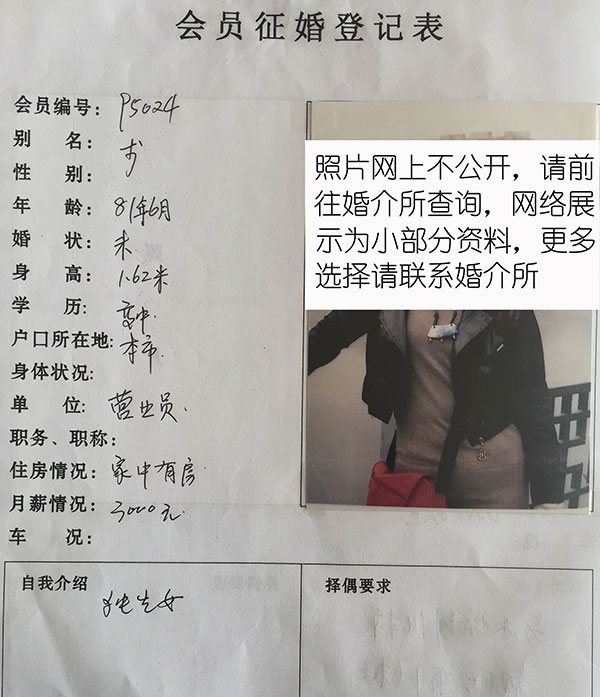 会员征婚登记表
会员编号: P5024
别 名:
性 别:
年 龄: 81年6月
婚 状: 未
身 高: 1.62米
学 历: 高中
户口所在地: 本市
身体状况:
单 位: 营业员.
职务、职称:
住房情况: 家中有房.
月薪情况: 3000元.
车 况:
照片网上不公开，请前
往婚介所查询，网络展
示为小部分资料，更多
选择请联系婚介所
自我介绍
独生女
择偶要求